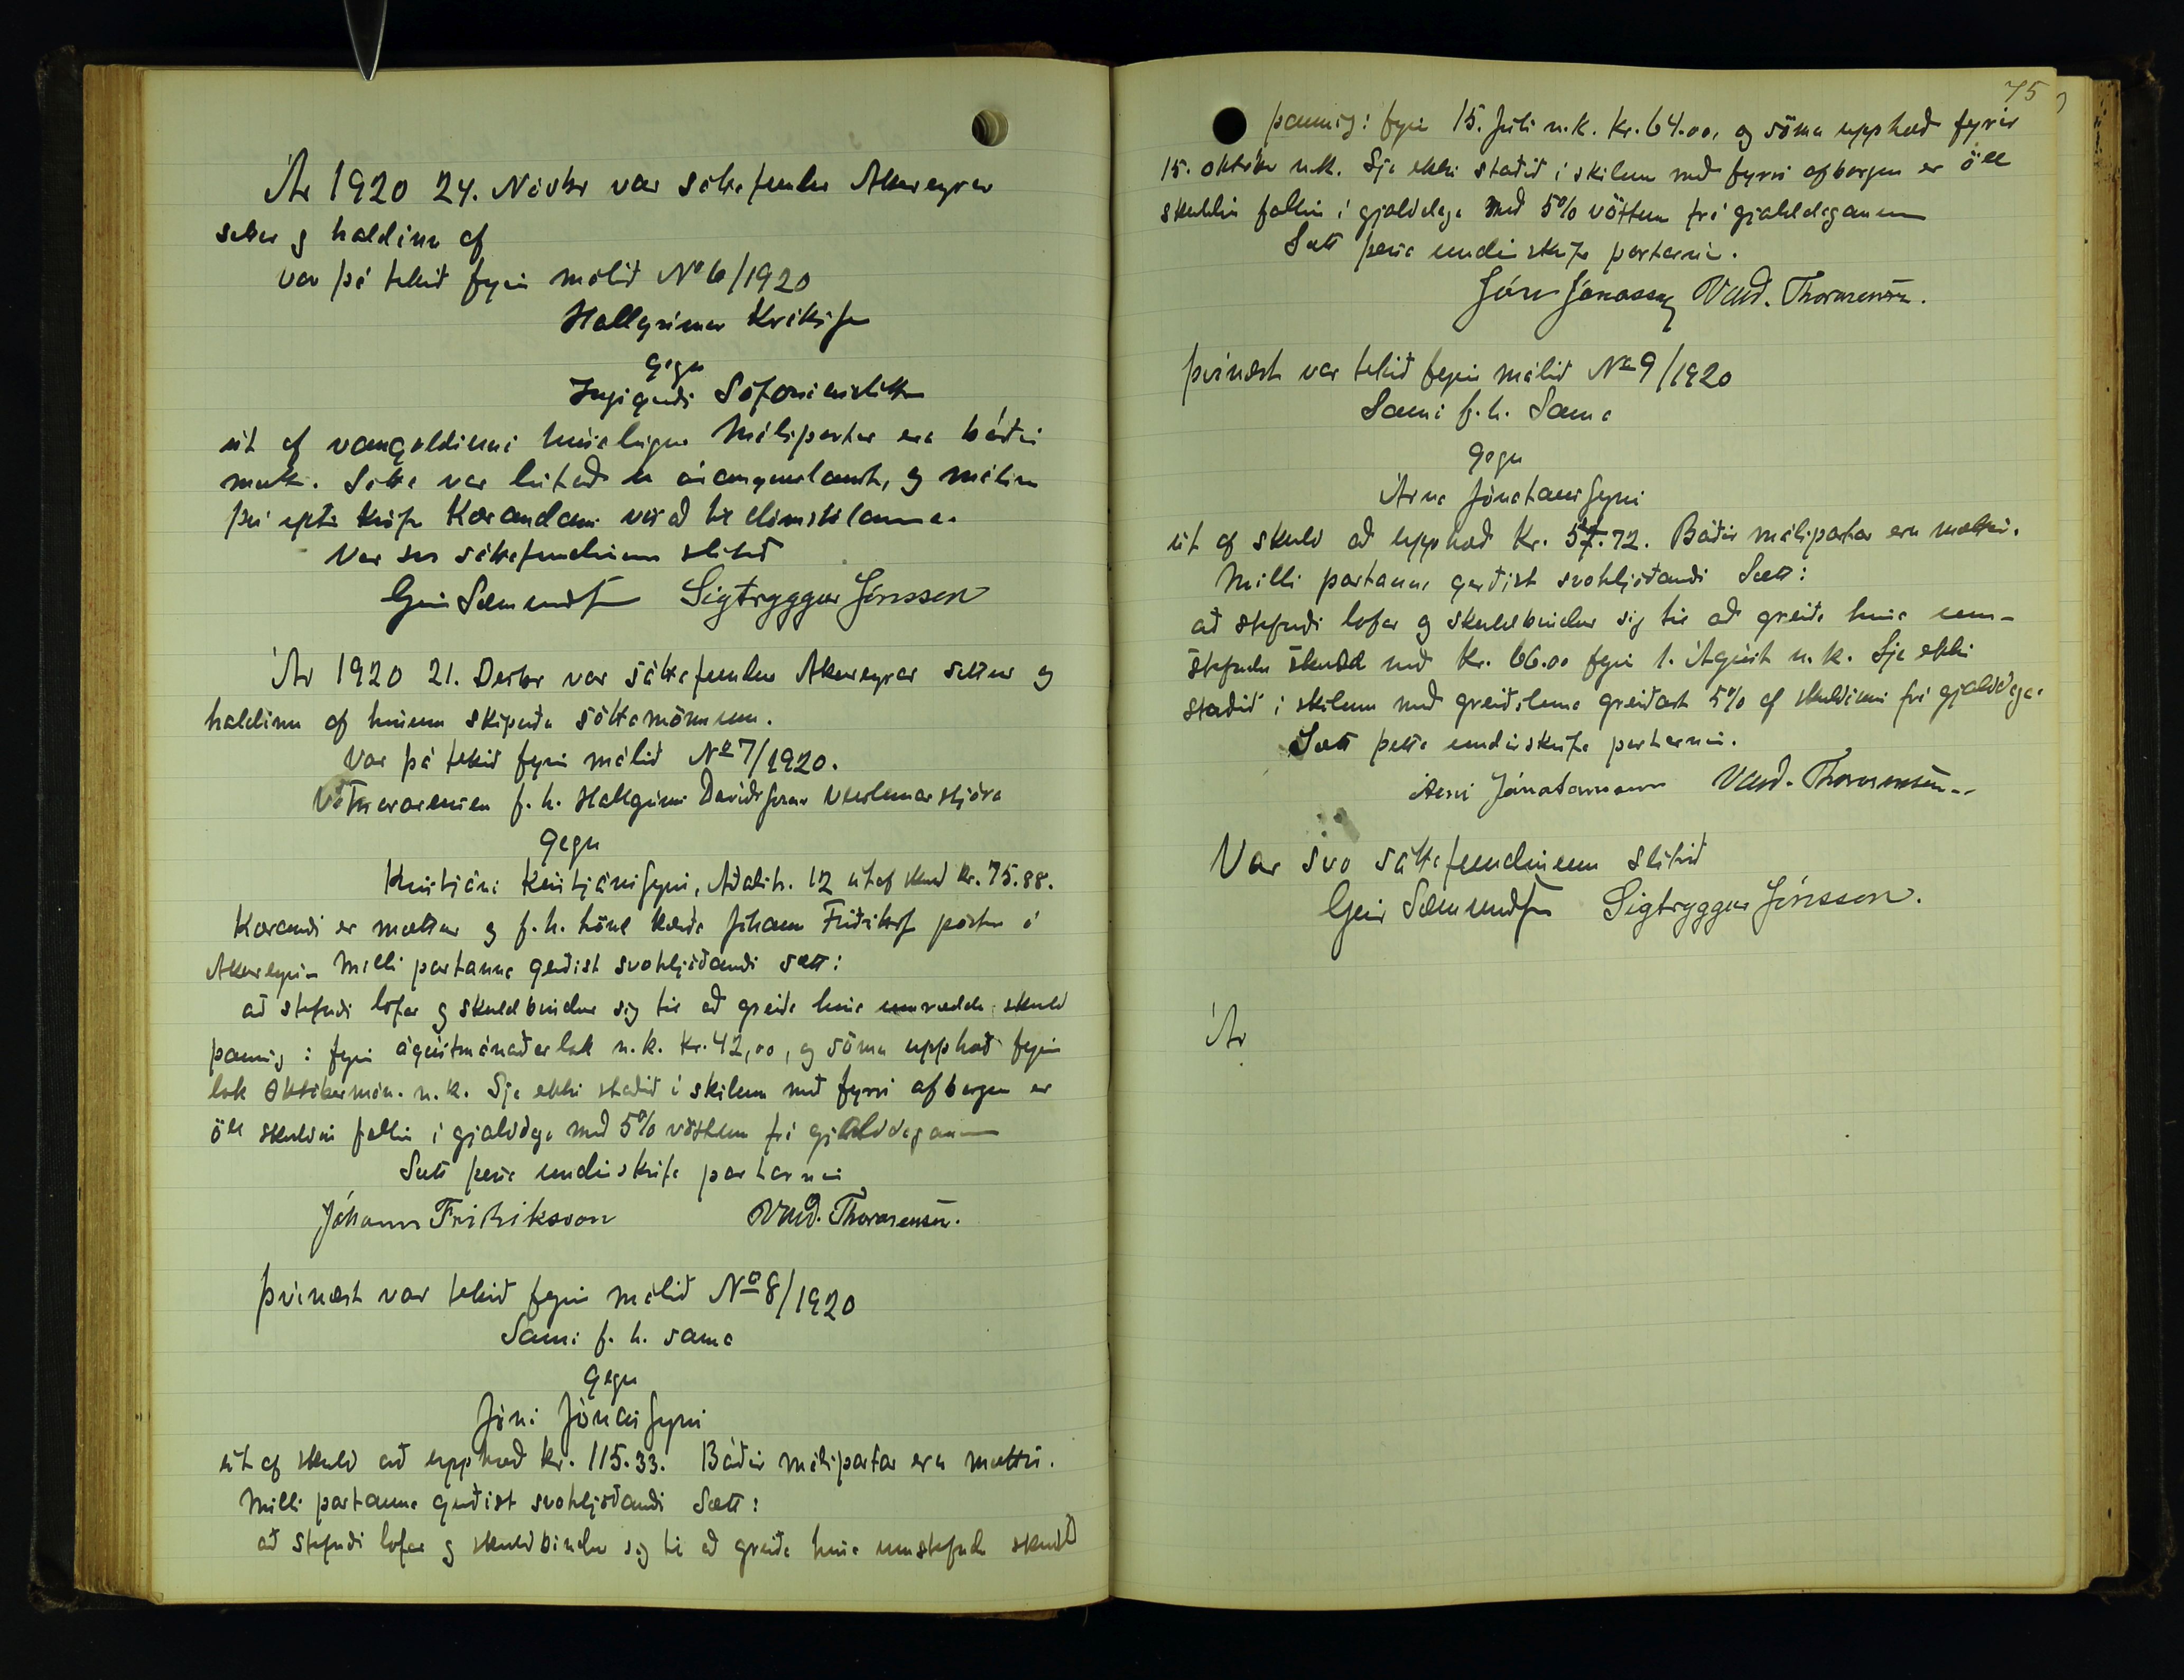 Ár 1920 24. Novbr var sáttafundur Akureyrar
settur og haldinn af
var þá tekið fyrir málið No 6/1920
Hallgrímur Kráksson
gegn
Ingigerði Sófoníasdóttur
út af vangoldinni húsaleigu Málspartar eru báðir
mætt. Sátta var leitað en árangurslaust, og málinu
því eptir kröfu Kærandans vísað til dómstólanna.
Var svo sáttafundinum slitið
Geir Sæmundsson Sigtryggur Jónsson
Ár 1920 21. Desbr var sáttafundur Akureyrar settur og
haldinn af hinum skipuðu sáttamönnum.
Var þá tekið fyrir málið No 7/1920.
V. Thorarensen f. h. Hallgríms Davíðssonar verslunarstjóra
gegn
Kristjáni Kristjánssyni, Aðalstr. 12 út af skuld kr. 75.88.
Kærandi er mættur og f. h. hins kærða Jóhann Friðriksson póstur á
Akureyri. Milli partanna gerðist svohljóðandi sætt:
að stefndi lofar og skuldbindur sig til að greiða hina umræddu skuld
þannig: fyrir ágústmánaðarlok n.k. kr. 42,00, og sömu upphæð fyrir
lok Októbermán. n.k. Sje ekki staðið í skilum með fyrri afborgun er
öll skuldin fallin í gjalddaga með 5% vöxtum frá gjalddaganum
Sætt þessa undirskrifa partarnir
Jóhann Friðriksson Vald. Thorarensen.
Þvínæst var tekið fyrir málið No 8/1920
Sami f. h. sama
gegn
Jóni Jónassyni
út af skuld að upphæð kr. 115.33. Báðir málspartar eru mættir.
Milli partanna gerðist svohljóðandi Sætt:
að stefndi lofar og skuldbindur sig til að greiða hina umstefndu skuld
75
þannig: fyrir 15. Júlí n.k. kr. 64.00, og sömu upphæð fyrir
15. október n.k. Sje ekki staðið í skilum með fyrri afborgun er öll
skuldin fallin í gjalddaga með 5% vöxtum frá gjalddaganum
Sætt þessa undirskrifa partarnir.
Jón Jónasson Vald. Thorarensen.
Þvínæst var tekið fyrir málið No 9/1920
Sami f. h. Sama
gegn
Árna Jónatanssyni
út af skuld að upphæð kr. 57.72. Báðir málspartar eru mættir.
Milli partanna gerðist svohljóðandi Sætt:
að stefndi lofar og skuldbindur sig til að greiða hina um-
stefndu skuld með kr. 66.00 fyrir 1. Ágúst n.k. Sje ekki
staðið í skilum með greiðsluna greiðast 5% af skuldinni frá gjalddaga.
Sætt þessa undirskrifa partarnir.
Árni Jónatansson Vald. Thorarensen.
Var svo sáttafundinum slitið
Geir Sæmundsson Sigtryggur Jónsson.
Ár